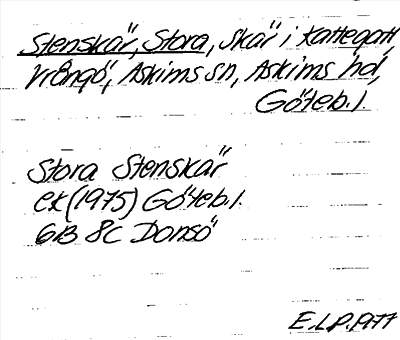 Stenskär, Stora, skär i Kattegatt,
Vrångö, Askims sn, Askims hd,
Göteb. l.
Stora Stenskär
ek (1975) Göteb. l.
6B 8c Donsö
E.L.P. 1977